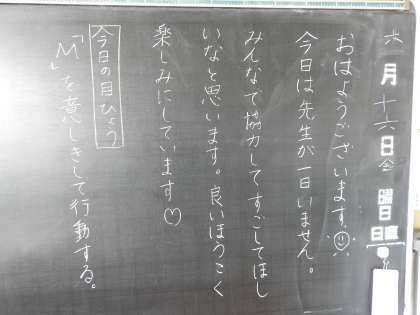 六月十六日金曜日
おはようございます。
今日は先生が一日いません。
みんなで協力してすごしてほし
いなと思います。良いほうこく
楽しみにしています♡
今日の目ひょう
「M」を意しきして行動する。